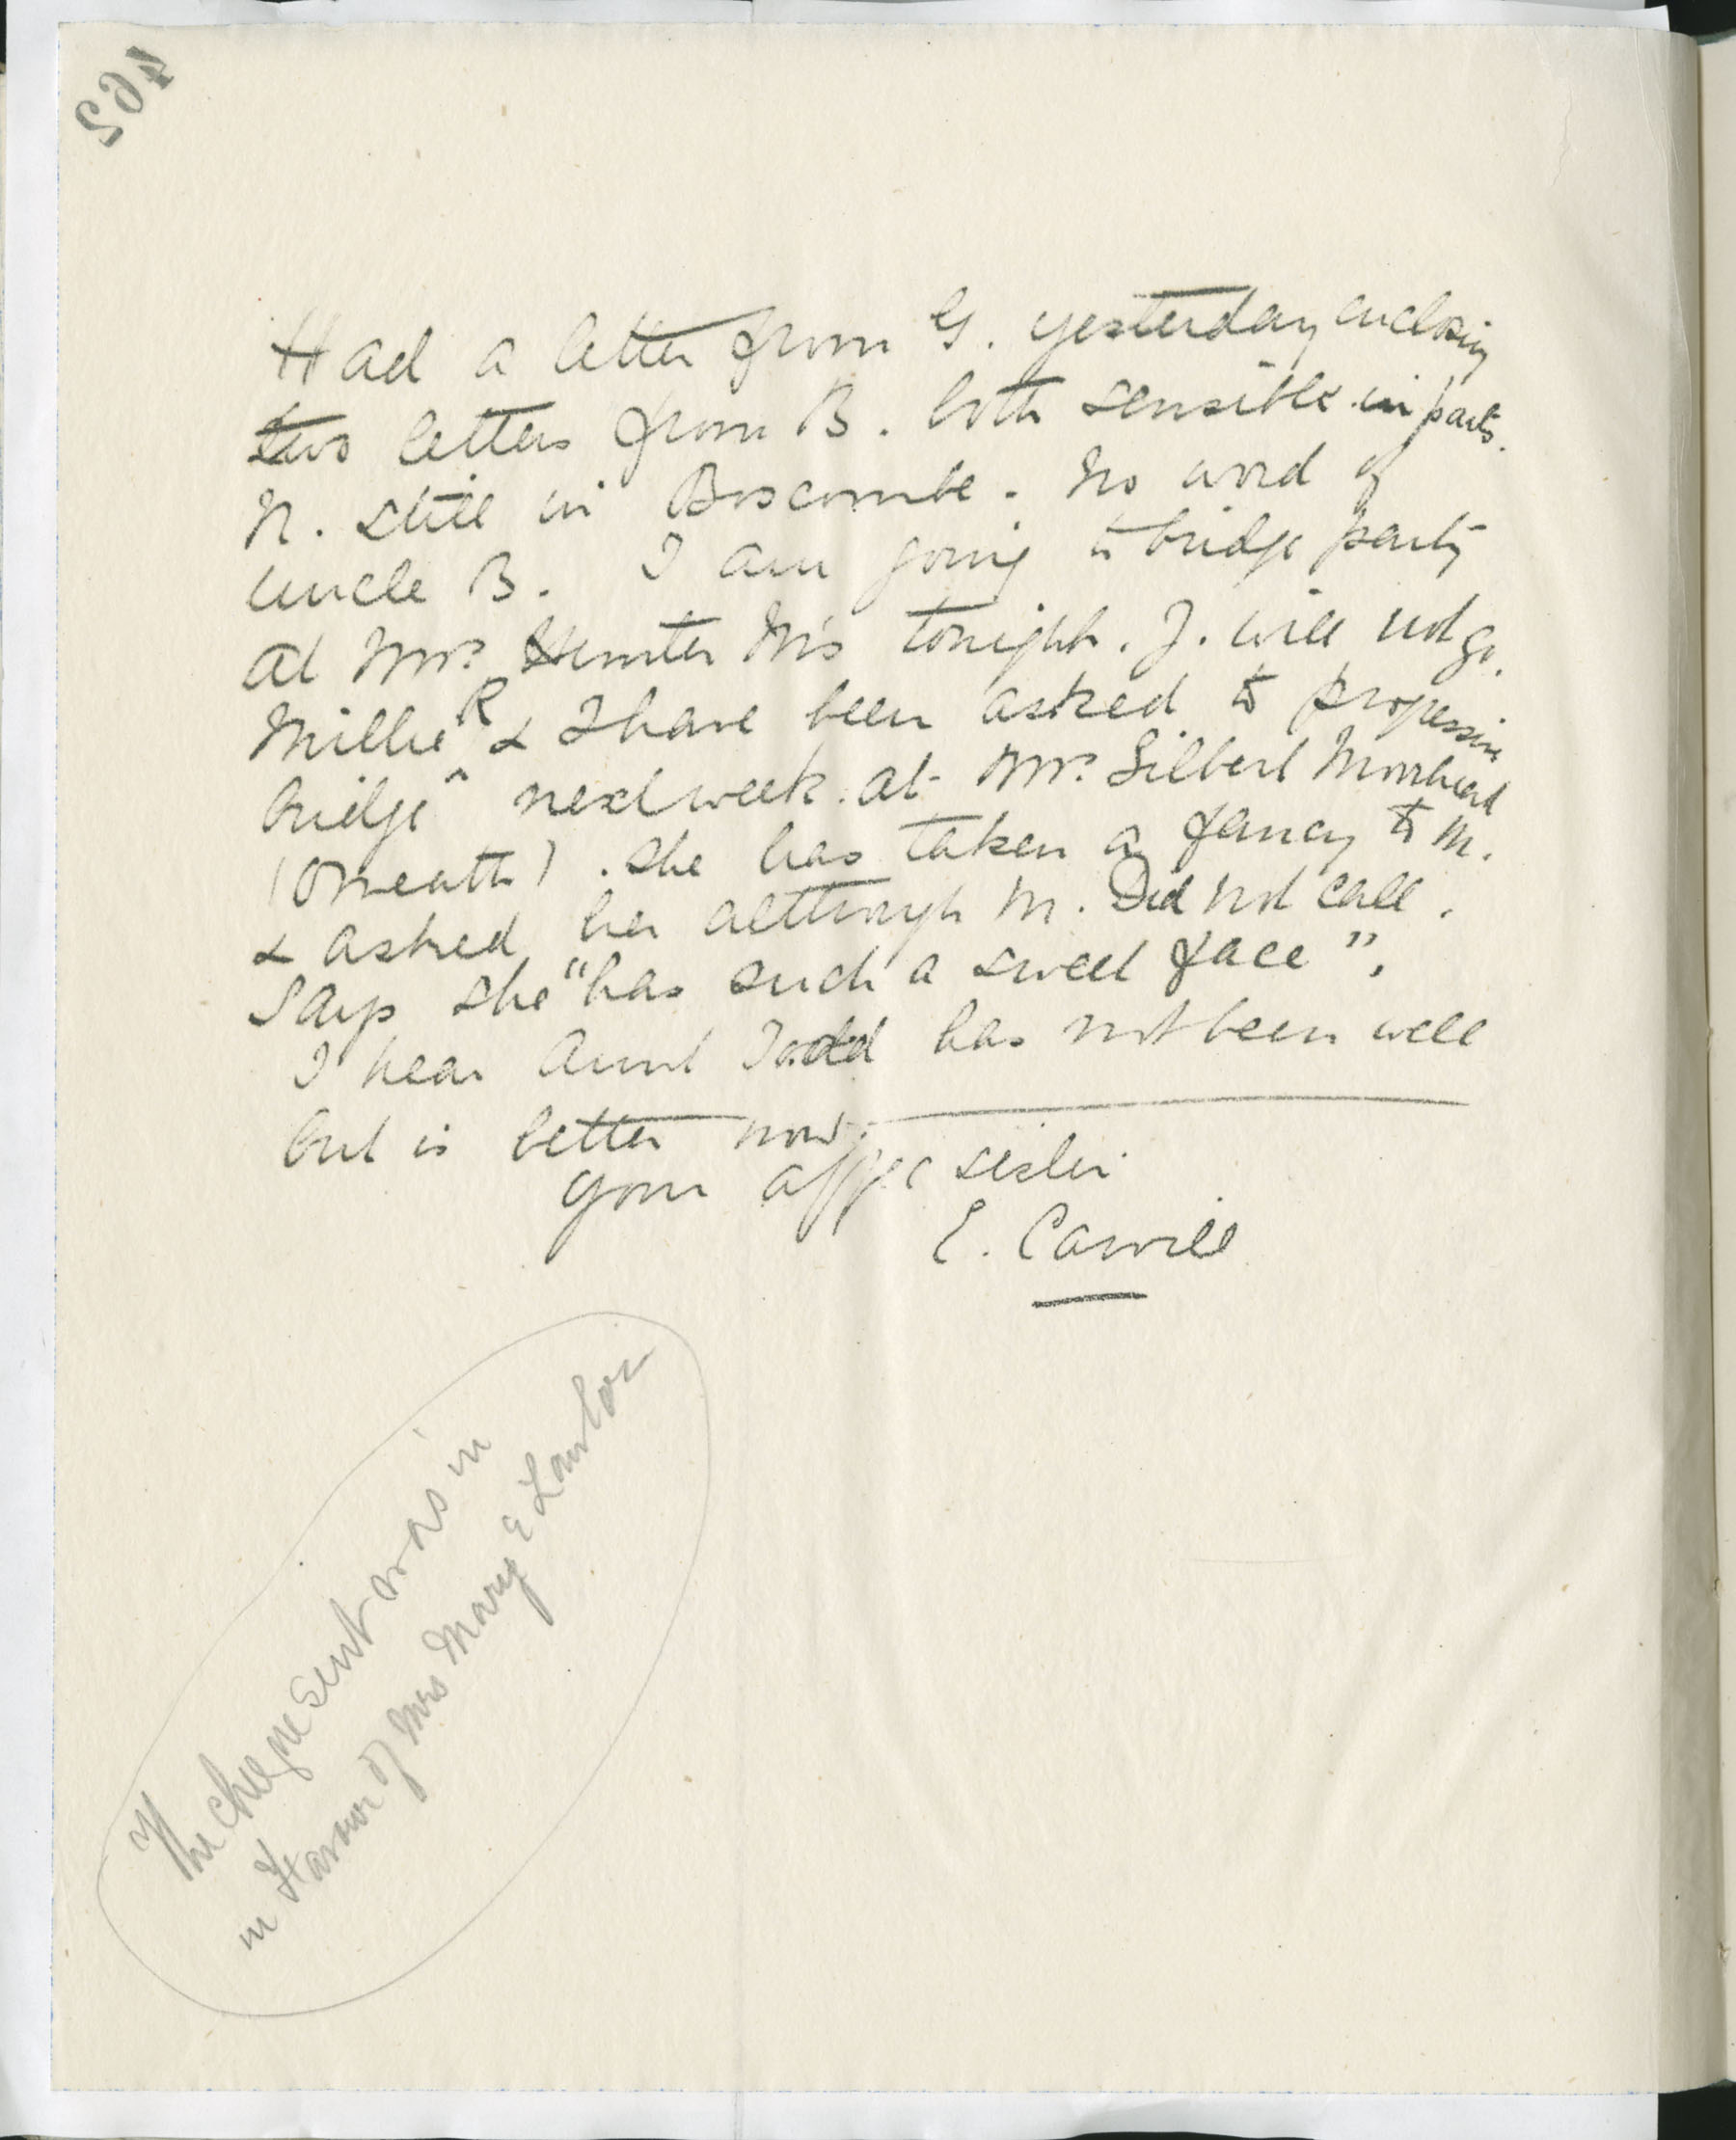 Had a letter from G. yesterday enclosing
two letters from B. both sensible in parts.
N. still in Boscombe. No word of
uncle B. I am going to bridge party
at Mrs. Hunter M's tonight. J. will not go.
Millie R & I have been asked to progressive
bridge next week at Mrs. Gilbert Moorhead
(Omeath). She has taken a fancy to M.
& asked her although M. Did not call.
Says she "has such a sweet face".
I hear Aunt Todd has not been well
but is better now.
Your affec sister
E. Carvill
The cheque sent was in
in Favour of Mrs Mary E Lawlor